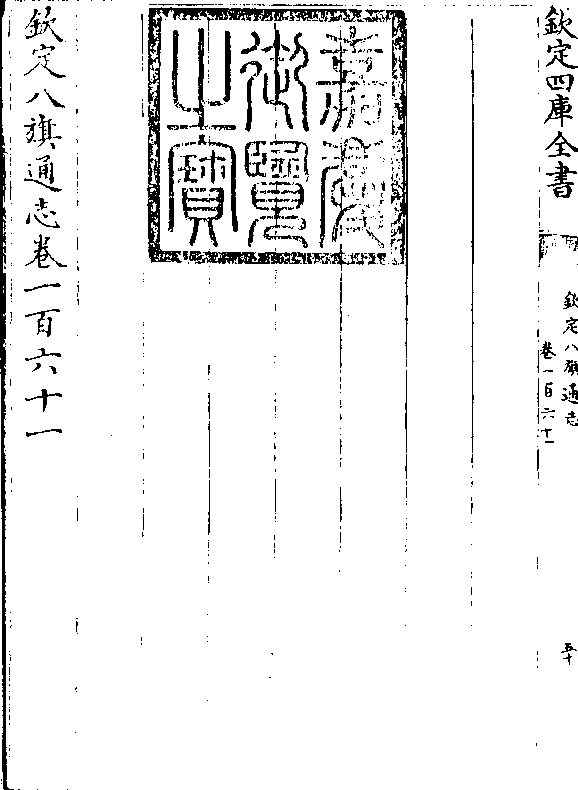 欽定四庫全書
欽定八旗通志
卷一百六十一
五十
嘉慶
御覽
之寶
欽定八旗通志卷一百六十一